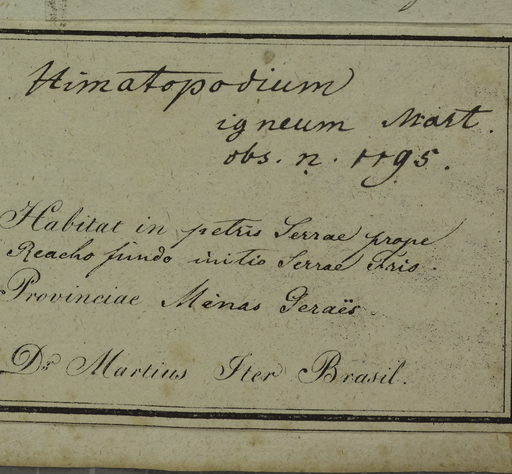 Himatopodium
igneum Mart.
obs. n. 1195.
Habitat in petris Serrae prope
Reacho fundo initio Serrae Frio.
Provinciae Minas Geraës
Dr. Martius Iter Brasil.